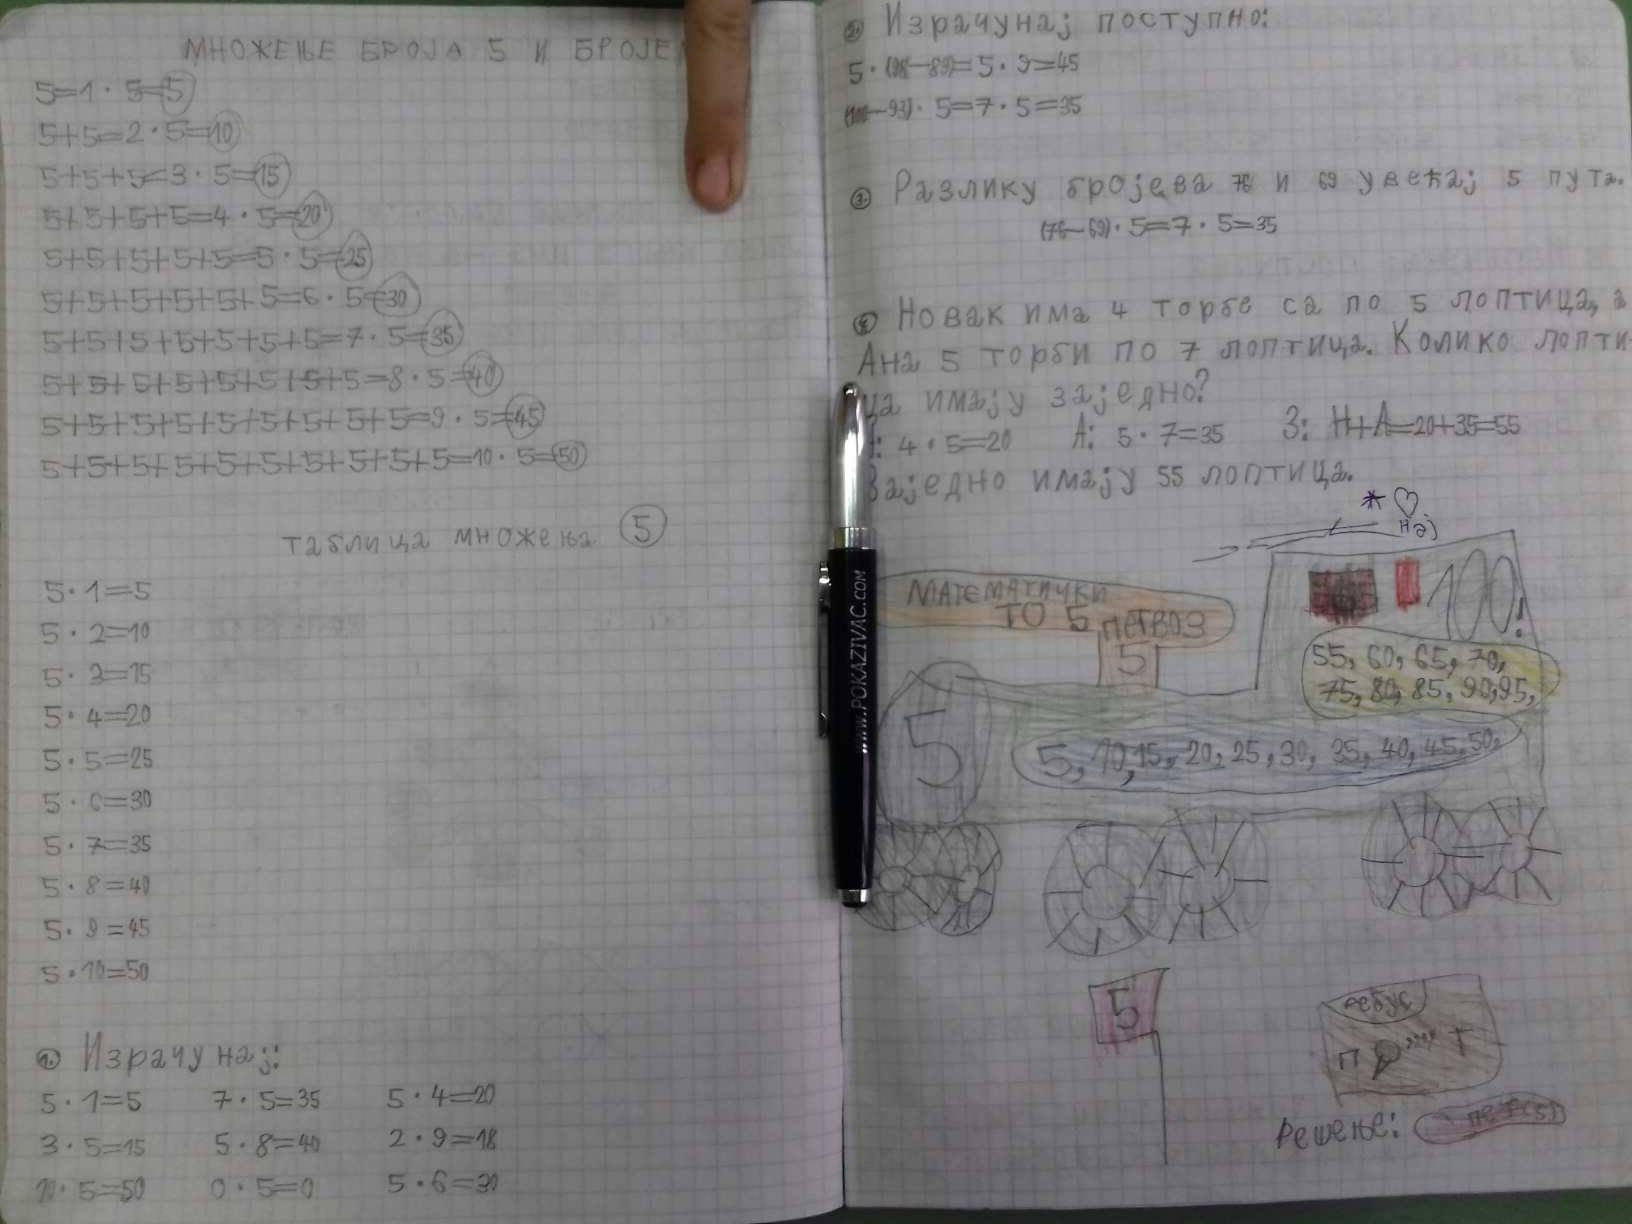 МНОЖЕЊЕ БРОЈА 5 И БРОЈЕМ
5=1·5=5
5+5=2·5=10
5+5+5=3·5=15
5+5+5+5=4·5=20
5+5+5+5+5=5·5=25
5+5+5+5+5+5=6·5=30
5+5+5+5+5+5+5=7·5=35
5+5+5+5+5+5+5+5=8·5=40
5+5+5+5+5+5+5+5+5=9·5=45
5+5+5+5+5+5+5+5+5+5=10·5=50
таблица множења 5
5·1=5
5·2=10
5·3=15
5·4=20
5·5=25
5·6=30
5·7=35
5·8=40
5·9=45
5·10=50
1. Израчунај:
5·1=5 7·5=35 5·4=20
3·5=15 5·8=40 2·9=18
10·5=50 0·5=0 5·6=30
2. Израчунај поступно:
5·(98-89)=5·9=45
(100-93)·5=7·5=35
3. Разлику бројева 76 и 69 увећај 5 пута.
(76-69)·5=7·5=35
4. Новак има 4 торбе са по 5 лоптица, а
Ана 5 торби по 7 лоптица. Колико лопти-
ца имају заједно?
4·5=20 А: 5·7=35 З: Н+А=20+35=55
Заједно имају 55 лоптица.
нај
МАТЕМАТИЧКИ
ТО 5
ПЕТВОЗ
5
100!
55, 60, 65, 70,
75, 80, 85, 90, 95,
5
5, 10, 15, 20, 25, 30, 35, 40, 45, 50,
www.POKAZIVAC.COM
5
ребус
П Т
Решење: пет (5)